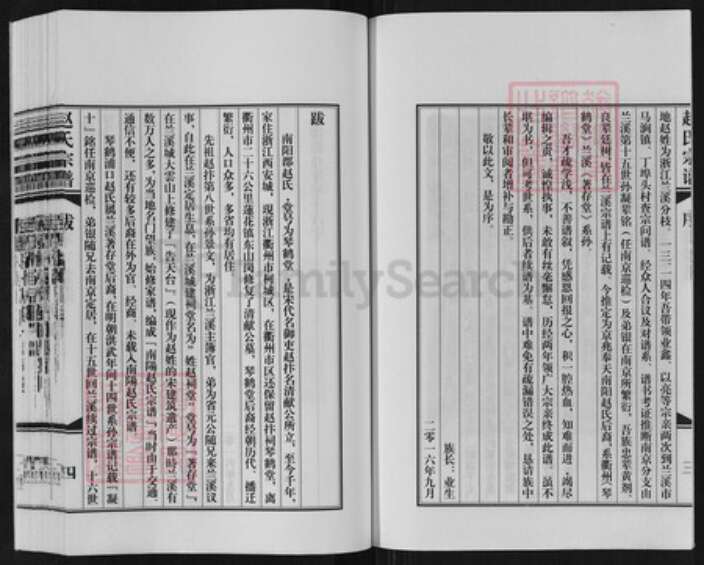 赵氏宗谱
序
三
地赵姓为浙江兰溪分枝。二〇一四年吾带领业鑫、以亮等宗亲两次到兰溪市
马涧镇、丁埠头村查宗问谱，经众人合议及对谱系、谱书考证推断南京分支由
兰溪第十五世孙凝辈铭（任南京巡检）及弟银在南京所繁衍，吾族忠辈黄荆、
良辈廷树，皆在兰溪宗谱上有记载，今推定为京兆奉天南阳赵氏后裔，系衢州《琴
鹤堂》兰溪《著存堂》系孙。
吾才疏学浅，不善谱叙，凭感恩回报之心，积一腔热血，知难而进，竭尽
编辑之责，诚惶执事，未敢有丝毫懈怠，历经两年领广大宗亲终成此谱，虽不
堪为书，但可考世系，供后者续谱为基。谱中难免有疏漏错误之处，恳请族中
长辈和审阅者增补与勘正。
敬以此文，是为序。
族长：业生
二零一六年九月
跋
南阳郡赵氏，堂号为琴鹤堂，是宋代名御吏赵抃名清献公所立，至今千年，
家住浙江西安城，现浙江衢州市柯城区，在衢州市区还保留赵抃祠琴鹤堂，离
衢州市二十六公里莲花镇东山岗修复了清献公墓。琴鹤堂后裔经朝历代，播迁
繁衍，人口众多，多省均有居住。
先祖赵抃第八世系孙景文，为浙江兰溪主簿官，弟为省元公随兄来兰溪议
事，自此在兰溪定居生息，在兰溪城建祠堂名为“姓赵祠堂”堂号为『著存堂』，
在兰溪城大云山上修建了『告天台』（现作为赵姓的宋建筑遗产）那时兰溪有
数万人之多，为当地名门望族，始修家谱，编成『南阳赵氏宗谱』，当时由于交通、
通信不便，还有较多后裔在外为官、经商，未载入南阳赵氏宗谱。
琴鹤浦口赵氏属兰溪著存堂后裔，在明朝洪武年间十四世系孙宗谱记载『凝
十』铭任南京巡检，弟银随兄去南京定居，在十五世回兰溪续过宗谱，十六世
赵氏宗谱
跋
四
FamilySearch